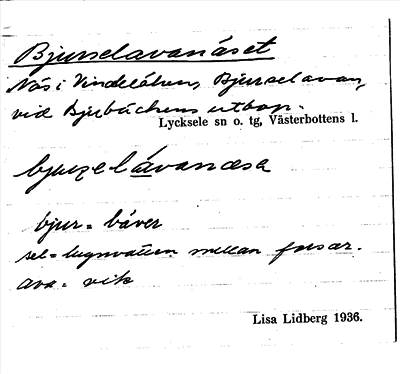 Bjurselavanäset
Näs i Vindelälven, Bjurselavan,
vid Bjurbäckens utlopp.
Lycksele sn o. tg, Västerbottens l.
bjur = bäver
sel = lugnvatten mellan forsar.
ava = vik
Lisa Lidberg 1936.